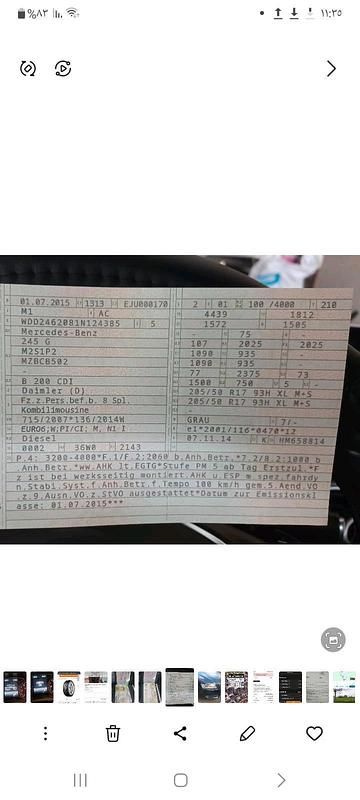 %٨٣
١١:٣٥
01.07.2015 1313 EJU000170
M1 AC
WDD2462081N124385 5
Mercedes-Benz
245 G
M2S1P2
MZBCB502
-
B 200 CDI
Daimler (D)
Fz.z.Pers.bef.b. 8 Spl.
Kombilimousine
715/2007*136/2014W
EURO6;W;PI/CI; M, N1 I
Diesel
0002 36W0 2143
2 01 100 /4000 210
4439 1812
1572 1505
- 75 -
107 2025 2025
1090 935 -
1090 935 -
77 2375 73
1500 750 5 -
205/50 R17 93H XL M+S
205/50 R17 93H XL M+S
-
GRAU 7/-
e1*2001/116*0470*12
07.11.14 K HM658814
P.4: 3200-4000*F.1/F.2:2060 b.Anh.Betr.*7.2/8.2:1000 b
.Anh.Betr.*ww.AHK lt.EGTG*Stufe PM 5 ab Tag Erstzul.*F
z ist bei werksseitig montiert.AHK u.ESP m.spez.fahrdy
n.Stabi.Syst.f.Anh.Betr.f.Tempo 100 km/h gem.5.Aend.VO
.z.9.Ausn.VO.z.StVO ausgestattet*Datum zur Emissionskl
asse: 01.07.2015***